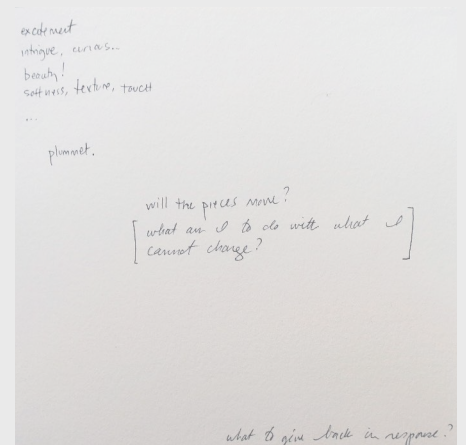 excitement
intrigue, curious..
beauty!
softness, texture, touch
...
plummet.
will the pieces move?
[what am I to do with what I
cannot change?]
what to give back in response?